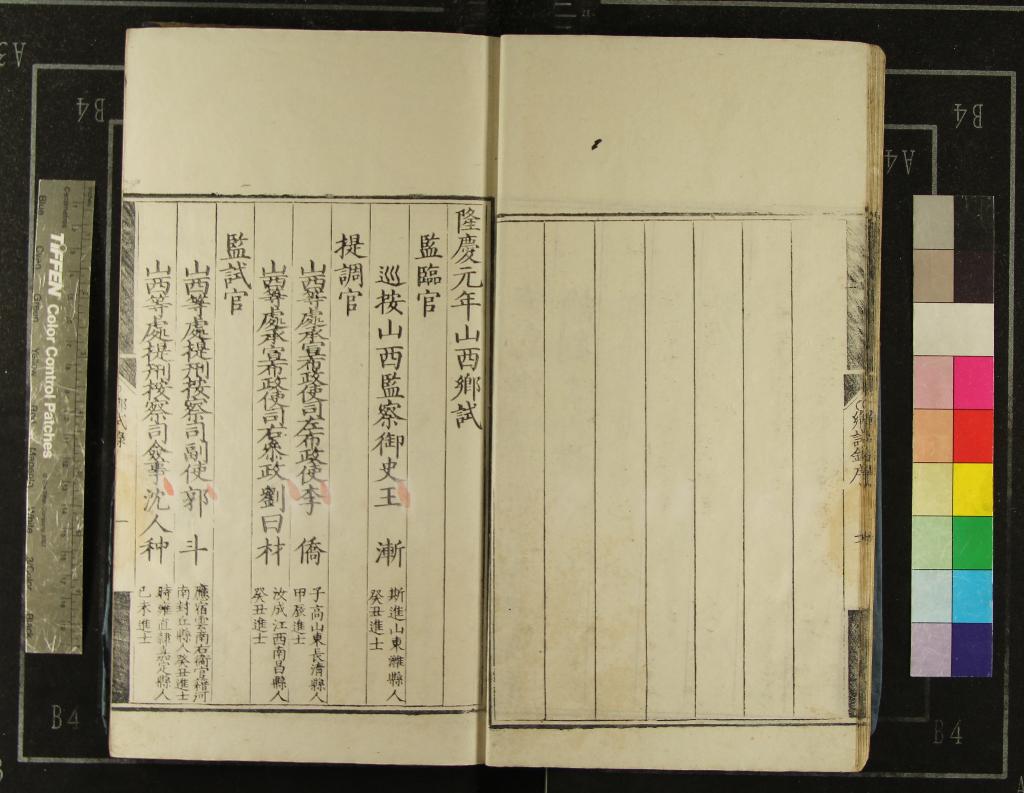 隆慶元年山西鄉試
監臨官
巡按山西監察御史王 漸
斯進山東濰縣人
癸丑進士
提調官
山西等處承宣布政使司左布政使李 僑
子高山東長清縣人
甲辰進士
山西等處承宣布政使司右參政劉曰材
汝成江西南昌縣人
癸丑進士
監試官
山西等處提刑按察司副使郭 斗
應宿雲南右衛官籍河
南封丘縣人癸丑進士
山西等處提刑按察司僉事沈人种
時雍直隸嘉定縣人
己未進士
鄉試錄序
TIFFEN Color Control Patches
B4
B4
A4
B4
B4
A3